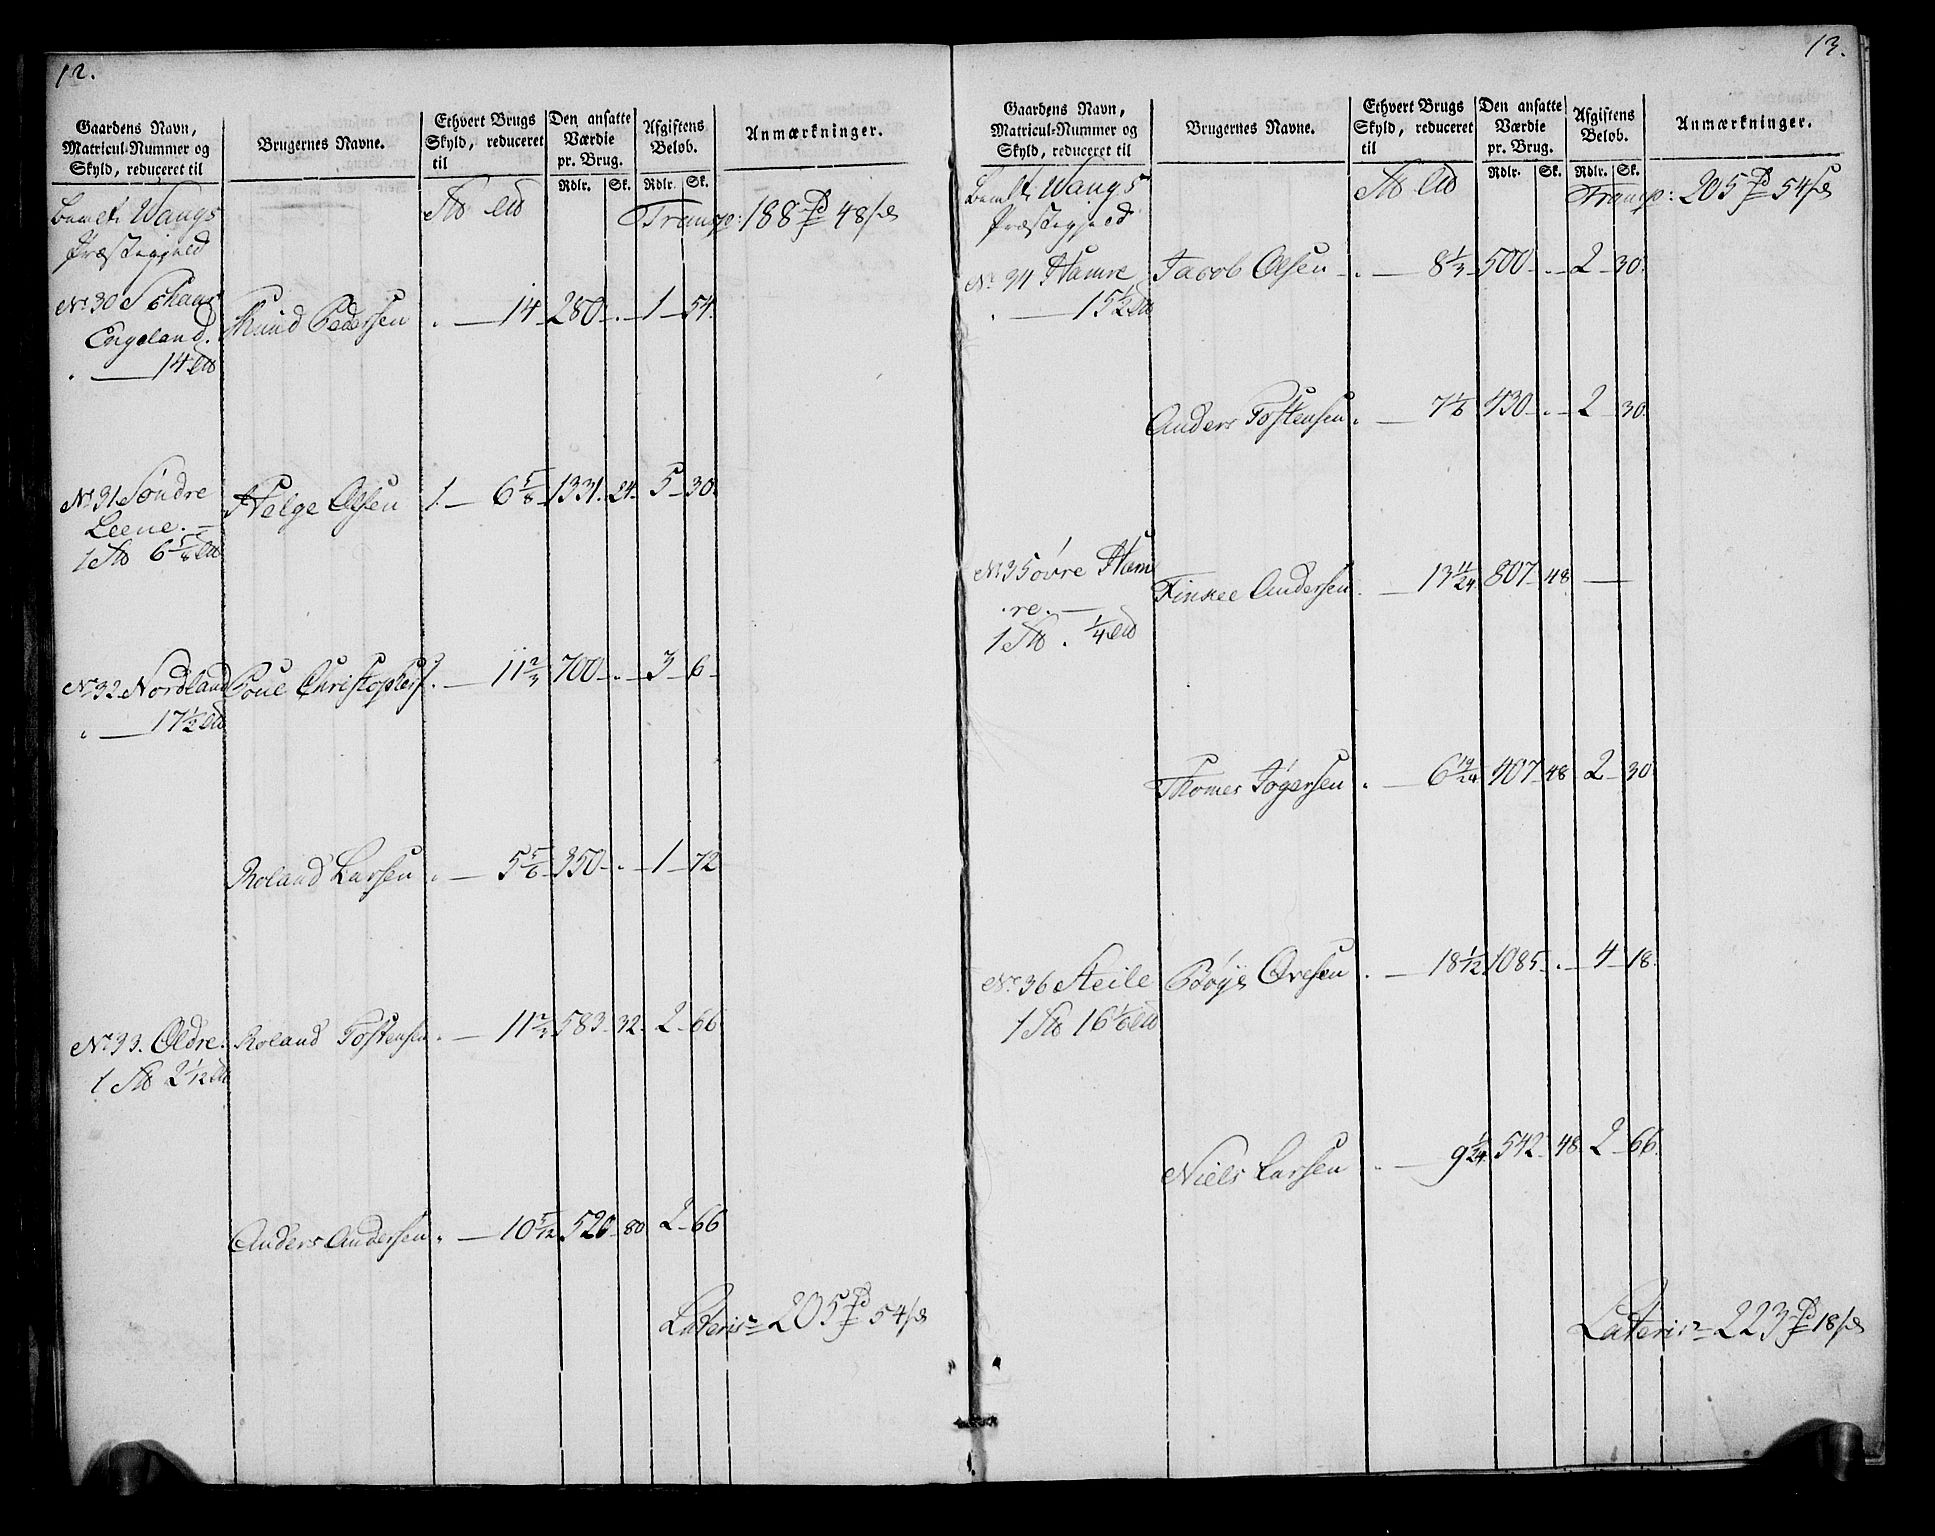 12.
Gaardens Navn, Matricul-Nummer og Skyld, reduceret til
Brugernes Navne.
Ethvert Brugs Skyld, reduceret til
Den ansatte Værdie pr. Brug.
Afgiftens Beløb.
Anmærkninger.
Rdlr. Sk. Rdlr. Sk.
Wangs
Præstegield
Transp: 188 48
No 30
Engeland. Knud Pedersen 14 280 1 54
14
No 31 Søndre Helge Olsen 1 6 5/8 1331 24 5 30
Leene.
1 6 5/8
No 32 Nordland Poul Christophers. 11 2/3 700 3 6
17 1/2
Roland Larsen 5 5/6 350 1 72
No 33. Oldre. Roland Tostensen 11 2/3 583 32 2 66
1 2 1/12
Anders Andersen 10 5/12 520 80 2 66
Lateris 205 54
13.
Gaardens Navn, Matricul-Nummer og Skyld, reduceret til
Brugernes Navne.
Ethvert Brugs Skyld, reduceret til
Den ansatte Værdie pr. Brug.
Afgiftens Beløb.
Anmærkninger.
Rdlr. Sk. Rdlr. Sk.
Wangs
Præstegield
Transp: 205 54
No 34 Hamre Jacob Olsen 8 1/3 500 2 30
15 1/2
Anders Tostensen 7 1/6 430 2 30
No 35 øvre Ham
re. Andersen 13 11/24 807 48
1 1/4
Thomes Jøgersen 6 19/24 407 48 2 30
No 36 Steile Bøye Ovesen 18 1/12 1085 4 18
1 16 1/6
Niels Larsen 9 1/24 542 48 2 66
Lateris 223 18